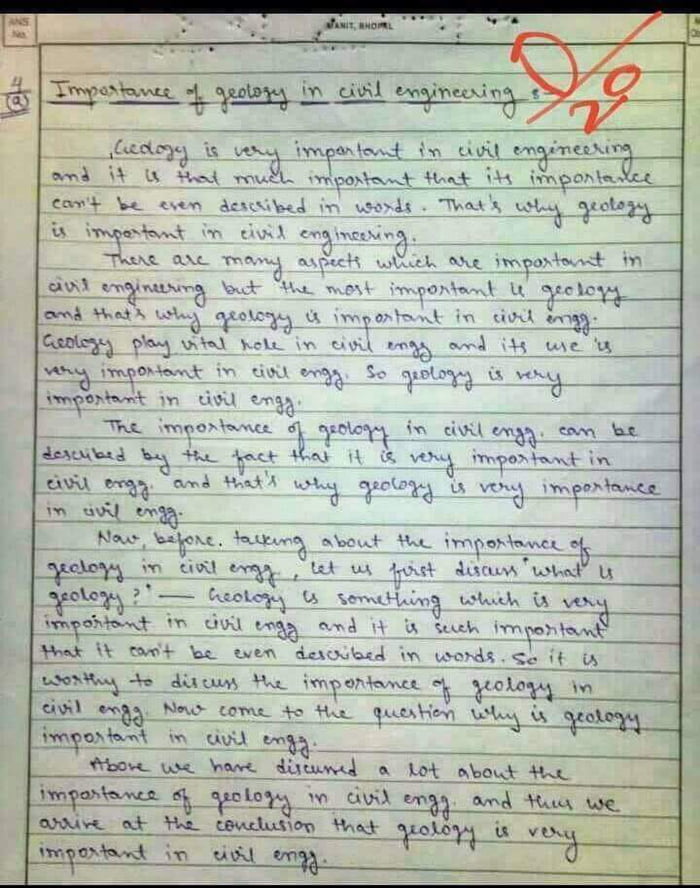 ANS No.
MANIT, BHOPAL
4/(a)
Importance of geology in civil engineering :-
0/20
Geology is very important in civil engineering
and it is that much important that its importance
can't be even described in words. That's why geology
is important in civil engineering.
There are many aspects which are important in
civil engineering but the most important is geology
and that's why geology is important in civil engg.
Geology play vital role in civil engg and its use is
very important in civil engg. So geology is very
important in civil engg.
The importance of geology in civil engg. can be
described by the fact that it is very important in
civil engg. and that's why geology is very importance
in civil engg.
Now, before. talking about the importance of
geology in civil engg, let us first discuss "what is
geology?" — Geology is something which is very
important in civil engg and it is such important
that it can't be even described in words. So it is
worthy to discuss the importance of geology in
civil engg. Now come to the question why is geology
important in civil engg.
Above we have discussed a lot about the
importance of geology in civil engg. and thus we
arrive at the conclusion that geology is very
important in civil engg.